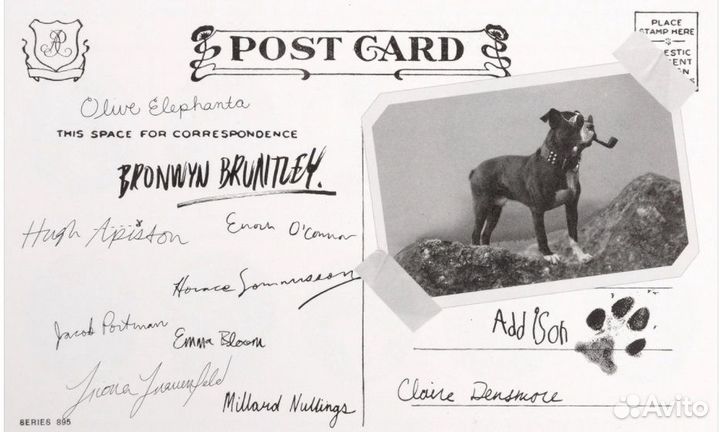 POST CARD
PLACE
STAMP HERE
Olive Elephanta
THIS SPACE FOR CORRESPONDENCE
BRONWYN BRUNTLEY.
Hugh Apiston
Enoch O'Connor
Horace Somnusson
Jacob Portman
Emma Bloom
Fiona Frauenfeld
Millard Nullings
Addison
Claire Densmore
SERIES 895
Avito